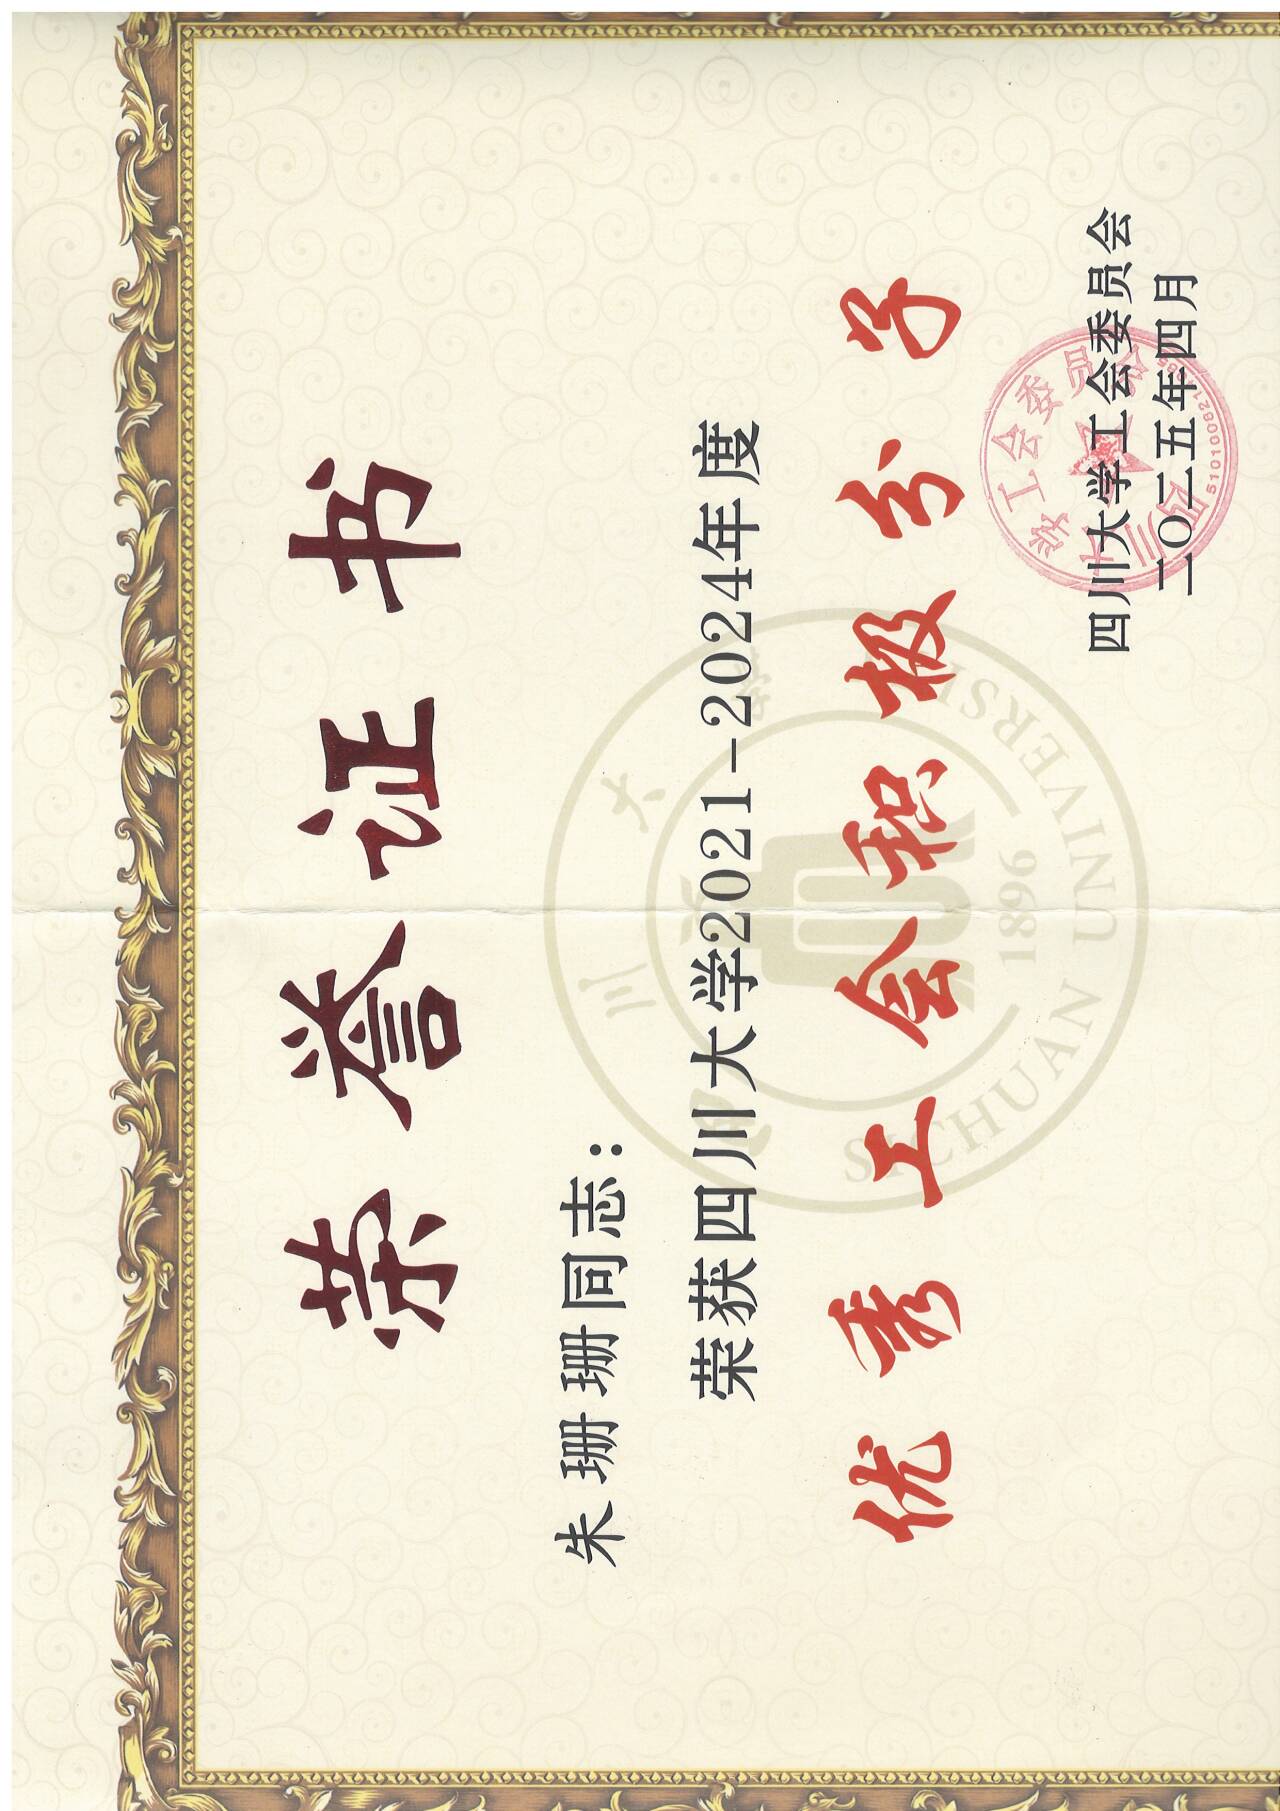 荣誉证书
朱珊珊同志：
荣获四川大学2021-2024年度
优秀工会积极分子
四川大学工会委员会
二〇二五年四月
四川大学
1896
SICHUAN UNIVERSI
四川大学工会委员会